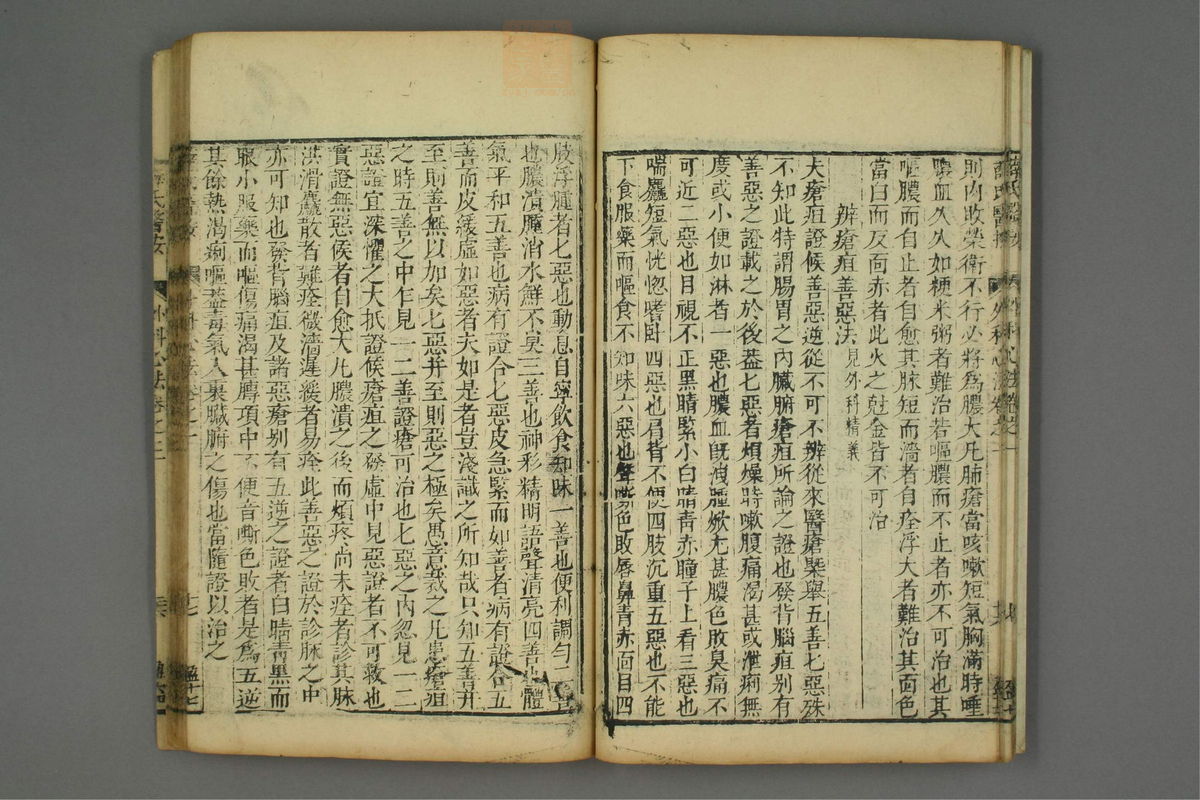 則內敗榮衛不行必將爲膿大凡肺瘡當咳嗽短氣胸滿時唾
膿血久久如粳米粥者難治若嘔膿而不止者亦不可治也其
嘔膿而自止者自愈其脉短而濇者自痊浮大者難治其面色
當白而反面赤者此火之尅金皆不可治
辨瘡疽善惡法見外科精義
夫瘡疽證候善惡逆從不可不辨從來醫瘡槩舉五善七惡殊
不知此特謂腸胃之內臟腑瘡疽所論之證也發背腦疽別有
善惡之證載之於後葢七惡者煩燥時嗽腹痛渴甚或泄痢無
度或小便如淋者一惡也膿血旣洩腫焮尤甚膿色敗臭痛不
可近二惡也目視不正黑睛緊小白睛青赤瞳子上看三惡也
喘麤短氣恍惚嗜卧四惡也肩背不便四肢沉重五惡也不能
下食服藥而嘔食不知味六惡也聲嘶色敗唇鼻青赤面目四
肢浮腫者七惡也動息自寧飲食知味一善也便利調勻二善
也膿潰腫消水鮮不臭三善也神彩精明語聲清亮四善也體
氣平和五善也病有證合七惡皮急緊而如善者病有證合五
善而皮緩虛如惡者夫如是者豈淺識之所知哉只知五善并
至則善無以加矣七惡并至則惡之極矣愚意裁之凡患瘡疽
之時五善之中乍見一二善證瘡可治也七惡之內忽見一二
惡證宜深懼之大抵證候瘡疽之發虛中見惡證者不可救也
實證無惡候者自愈大凡膿潰之後而煩疼尚未痊者診其脉
洪滑麤散者難痊微濇遲緩者易痊此善惡之證於診脉之中
亦可知也發背腦疽及諸惡瘡別有五逆之證者白睛青黑而
眼小服藥而嘔傷痛渴甚膊項中不便音嘶色敗者是爲五逆
其餘熱渴痢嘔葢毒氣入裏臟腑之傷也當隨證以治之